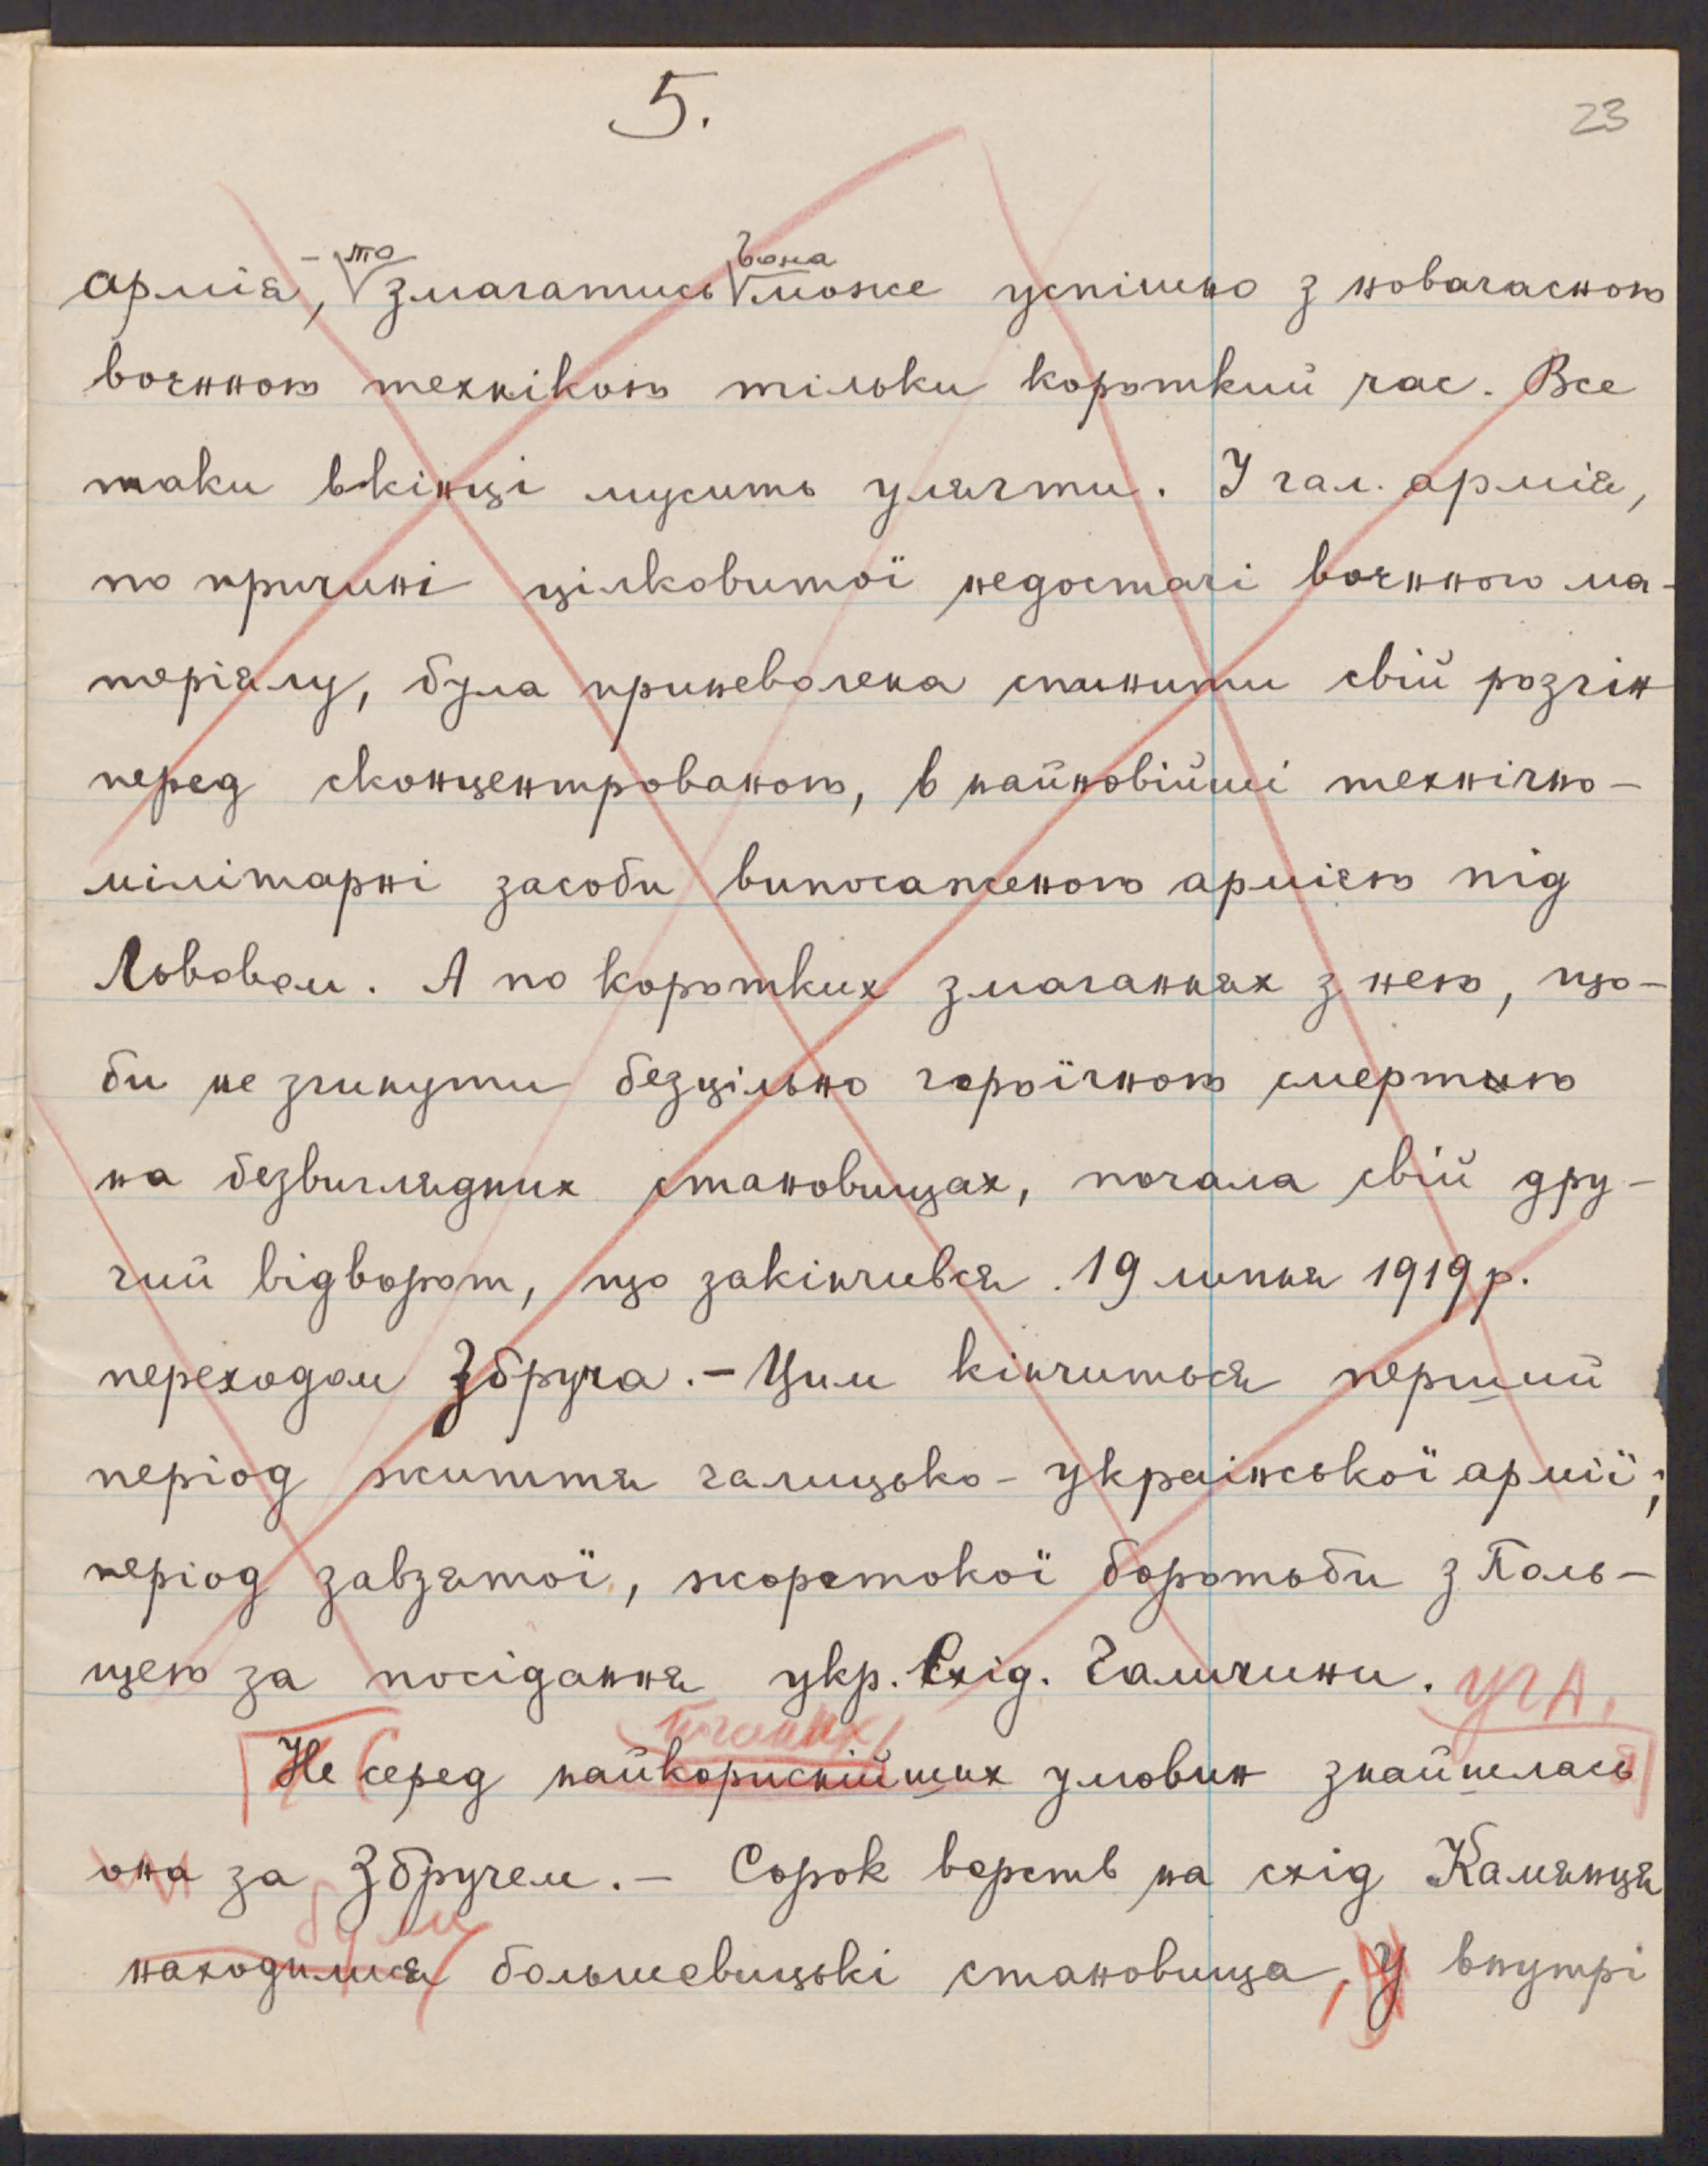 5.
23
армія, – то змагатись вона може успішно з новачасною
воєнною технікою тільки короткий час. Все
таки вкінці мусить улягти. І гал. армія,
по причині цілковитої недостачі воєнного ма-
теріялу, була приневолена спинити свій розгін
перед сконцентрованою, в найновійші технічно-
мілітарні засоби випосаженою армією під
Львовом. А по коротких змаганнях з нею, що-
би не згинути безцільно героїчною смертию
на безвиглядних становищах, почала свій дру-
гий відворот, що закінчився 19 липня 1919 р.
переходом Збруча. – Цим кінчиться перший
період життя галицько-української армії;
період завзятої, жорстокої боротьби з Поль-
щею за посідання укр. Схід. Галичини.
УГА.
Не серед найкориснійших умовин знайшлась
она за Збручем. – Сорок верств на схід Камянця
були
находилися большевицькі становища, У внутрі